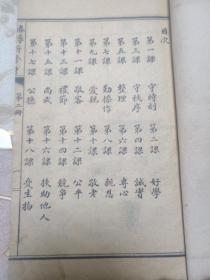 目次
第一課 守時刻 第二課 好學
第三課 守秩序 第四課 誠實
第五課 整理 第六課 專心
第七課 勤操作 第八課 親恩
第九課 愛親 第十課 敬老
第十一課 敬客 第十二課 公平
第十三課 禮節 第十四課 競爭
第十五課 尚武 第十六課 扶助他人
第十七課 公德 第十八課 愛生物